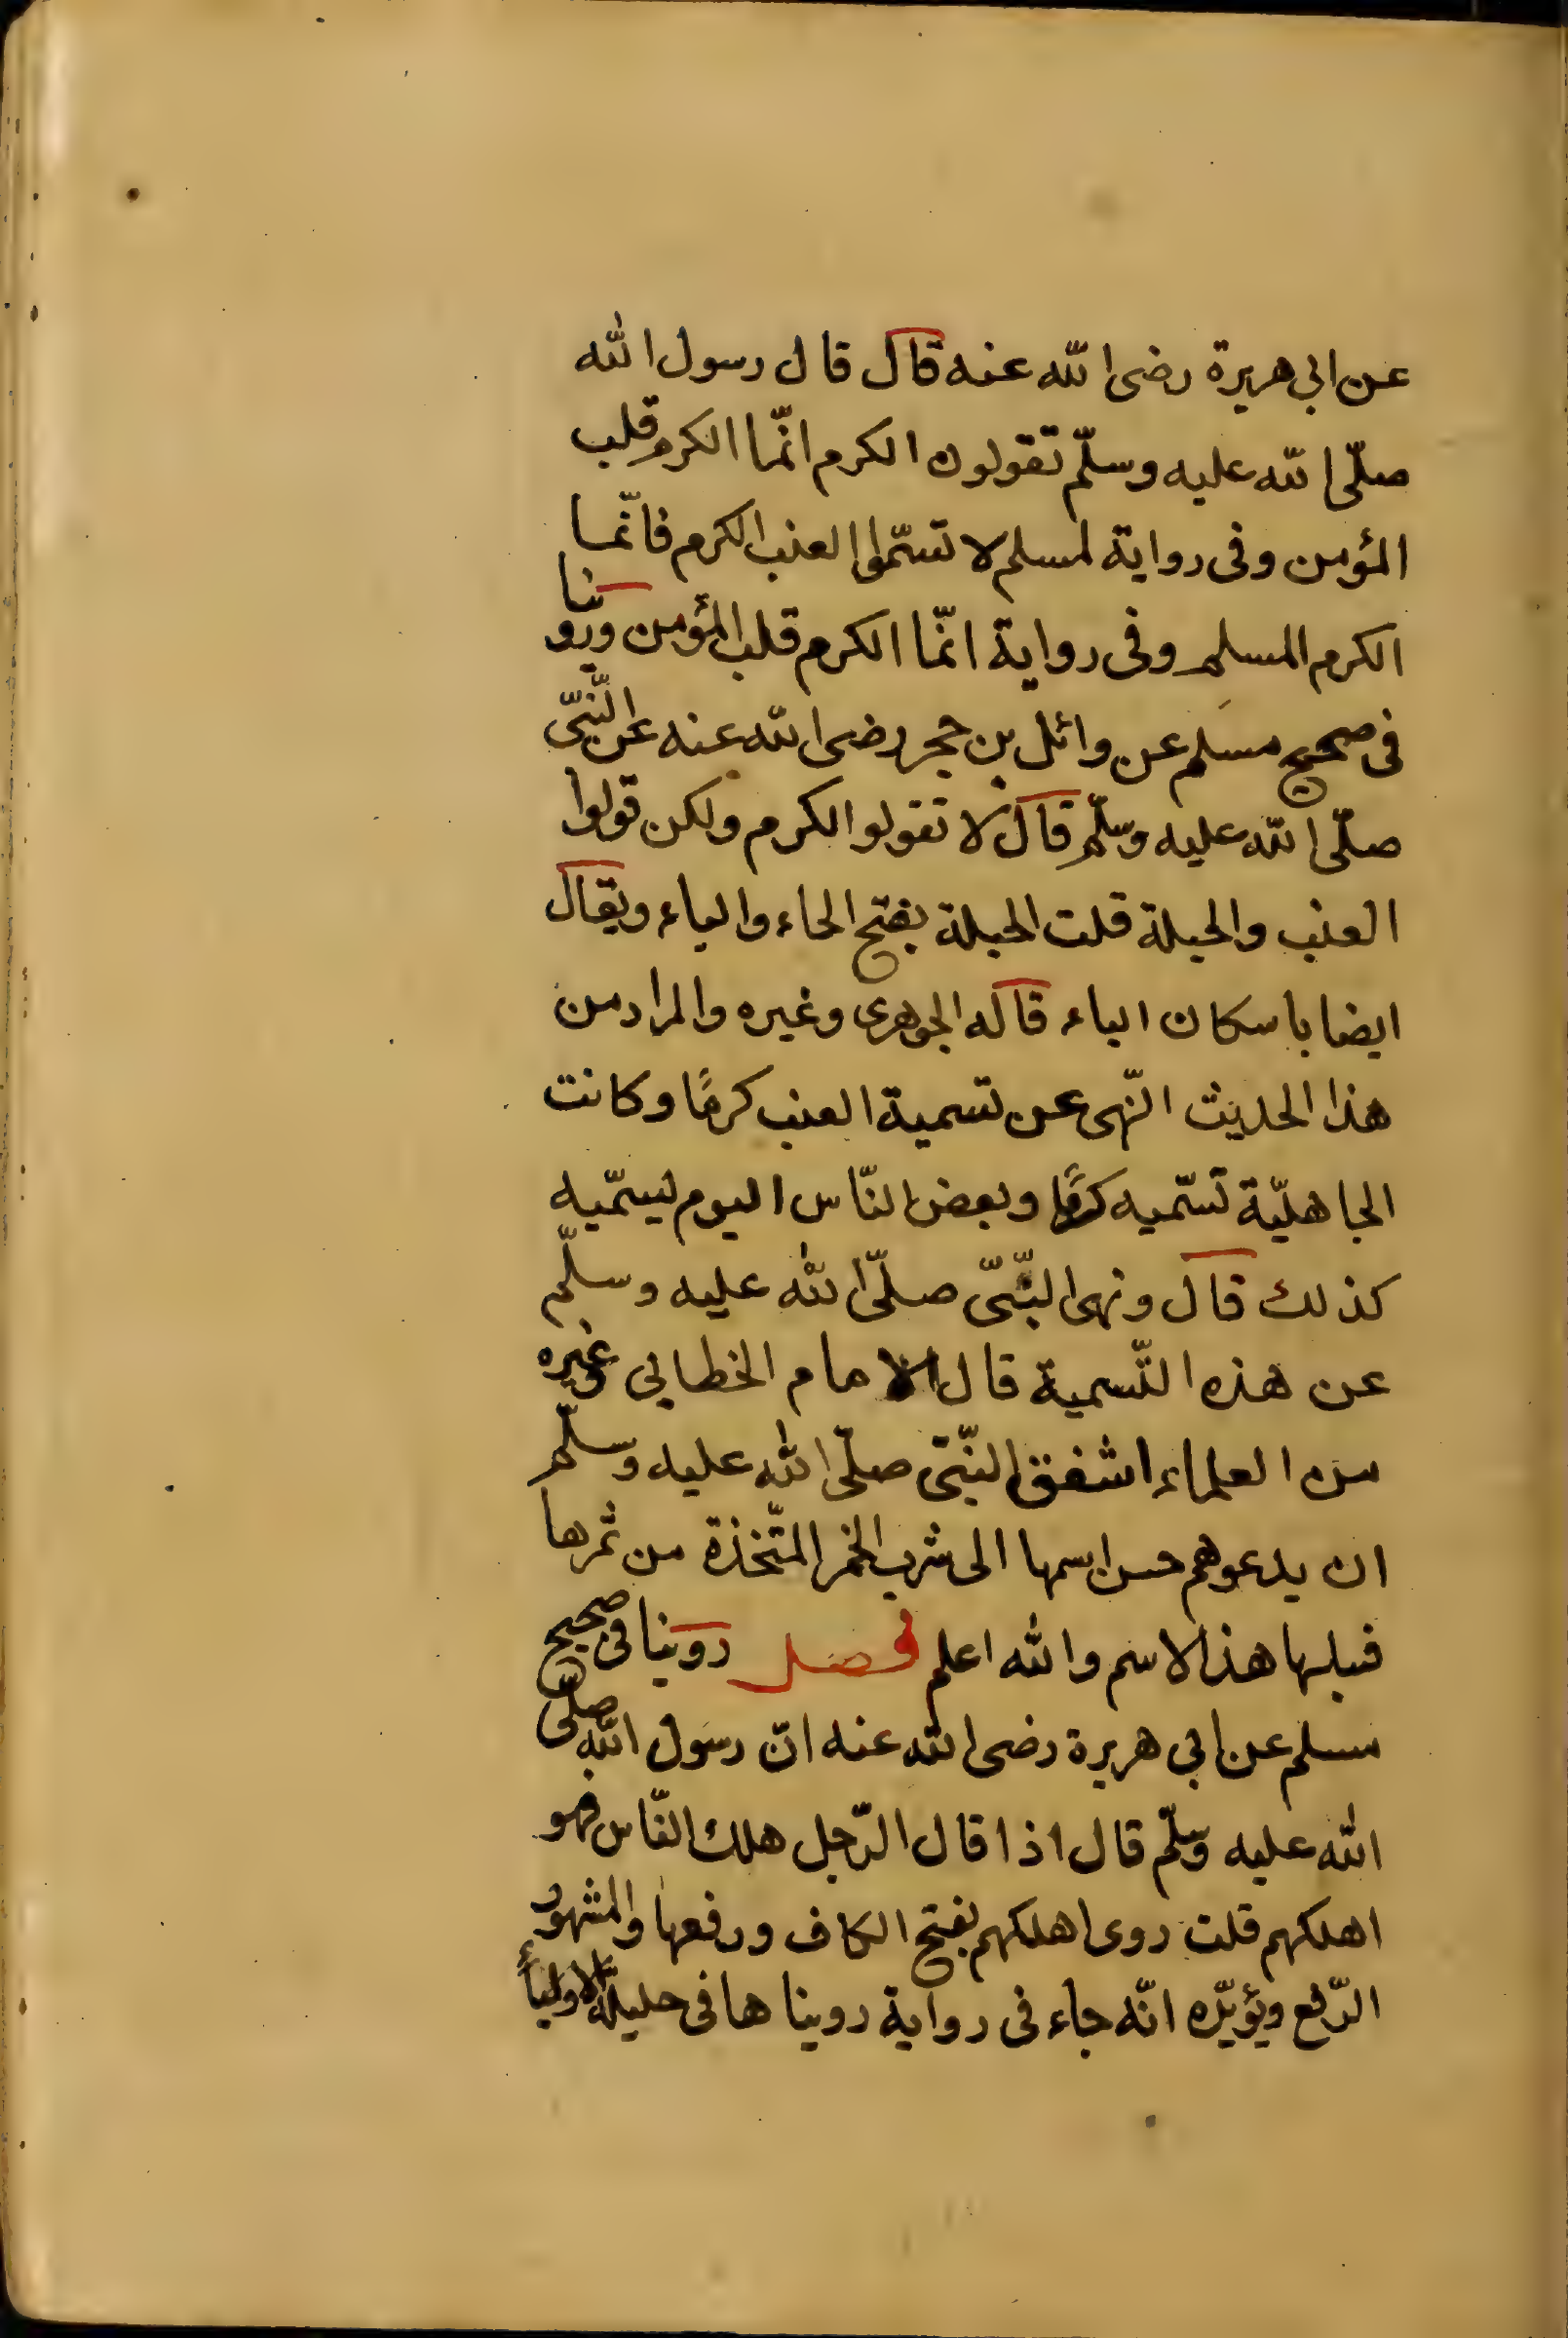 عن ابي هريرة رضى الله عنه قال قال رسول الله
صلّى الله عليه وسلّم تقولون الكرم انّما الكرم قلب
المؤمن وفى رواية لمسلم لا تسّموا العنب الكرم فانّما
الكرم المسلم وفى رواية انّما الكرم قلب المؤمن وروينا
فى صحيح مسلم عن وائل بن حجر رضى الله عنه عن النّبىّ
صلّى الله عليه وسلّم قال لا تقولو الكرم ولكن قولوا
العنب والحبلة قلت الحبلة بفتح الحاء والباء ويقال
ايضا باسكان الباء قاله الجوهرى وغيره والمراد من
هذا الحديث النّهى عن تسمية العنب كرمًا وكانت
الجاهليّة تسّميه كرمًا وبعض النّاس اليوم ليسمّيه
كذلك قال ونهى النبّىّ صلّى الله عليه وسلّم
عن هذه التّسمية قال الامام الخطابي وغيره
من العلماء اشفق النبّى صلّى الله عليه وسلّم
ان يدعوهم حسن اسمها الى شرب الخمر المتّخذة من ثمرها
فبلها هذا الاسم والله اعلم فصل روينا فى صحيح
مسلم عن ابي هريرة رضى الله عنه انّ رسول الله صلّى
الله عليه وسلّم قال اذا قال الرّجل هلك النّاس فهو
اهلكهم قلت روى اهلكهم بفتح الكاف ورفعها والمشهور
الرّفع ويؤيّده انّه جاء فى رواية روينا ها فى حليلة الاولياء